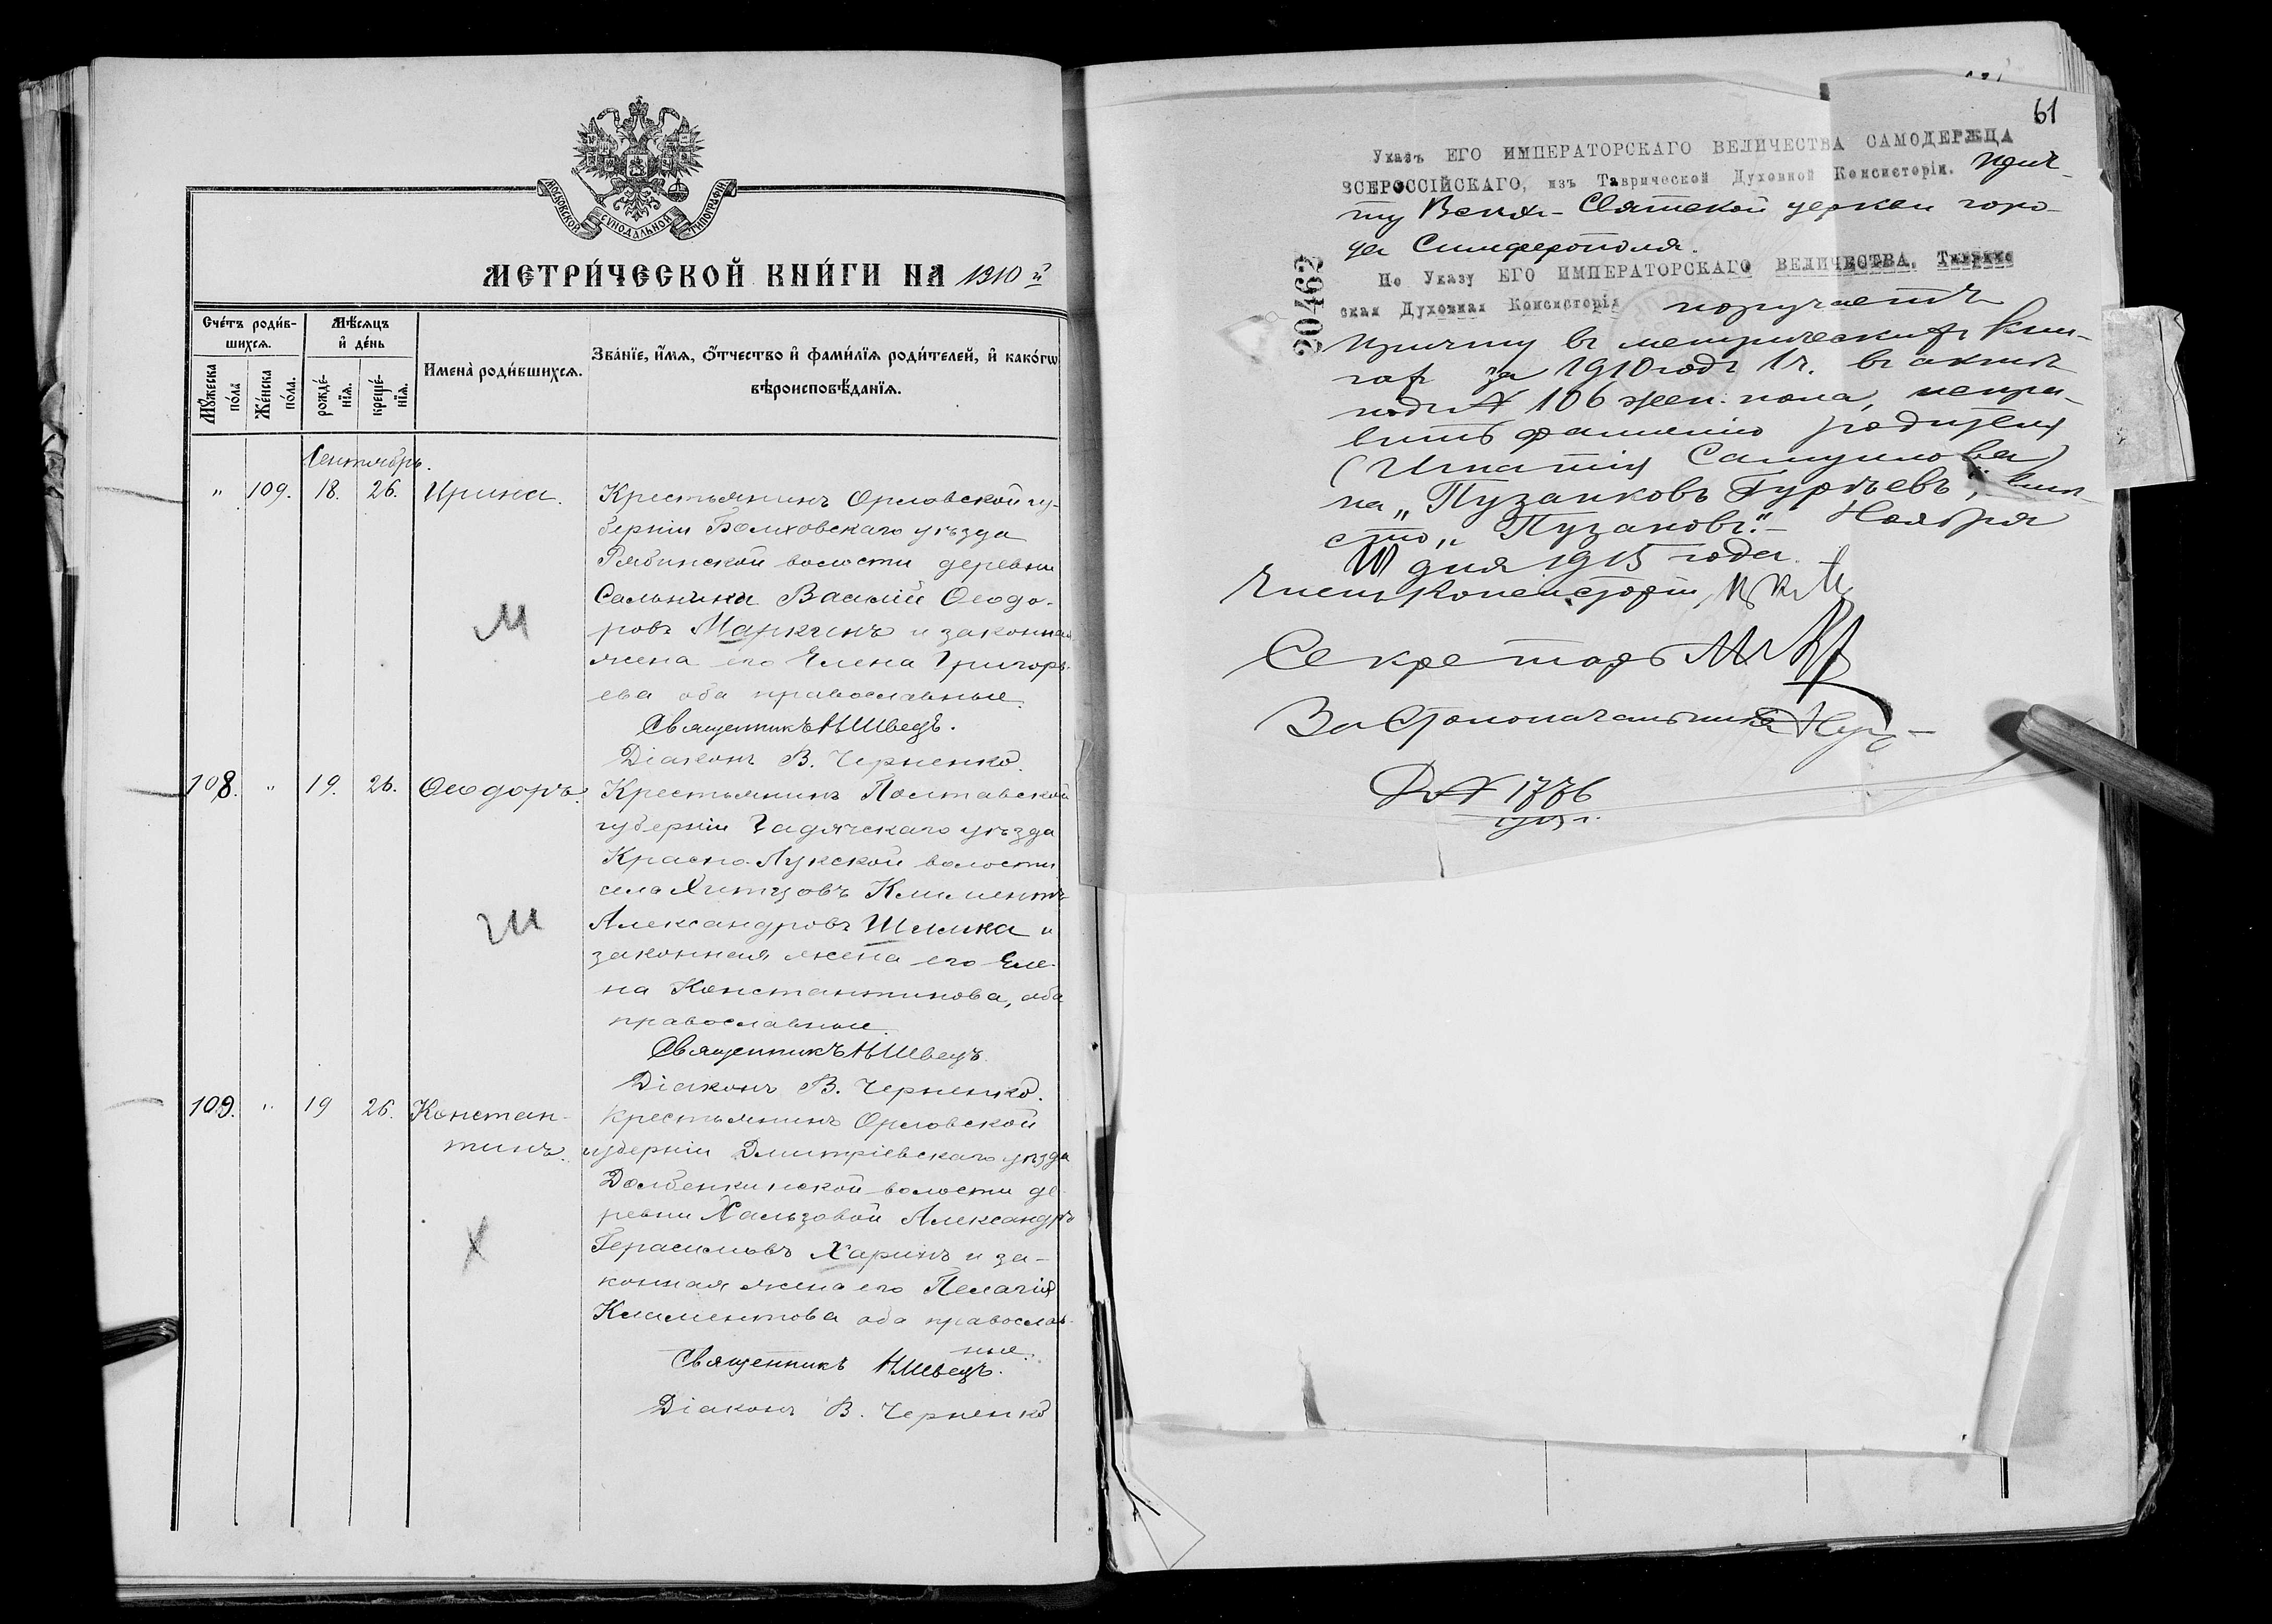 МОСКОВСКОЙ СѴНОДАЛЬНОЙ ТИПОГРАФІИ
МЕТРИ́ЧЕСКОЙ КНИ́ГИ НА 1910 й
Сче́тъ роди́в-
шихсѧ.
Мѣ́сѧцъ
и҆ де́нь
Мꙋ́жеска
по́ла
Же́нска
по́ла.
рожде́-
нїѧ.
креще́-
нїѧ.
И҆мена̀ роди́вшихсѧ.
Зва́нїе, и҆́мѧ, ѻ҆́тчество и҆ фами́лїѧ роди́телей, и҆ како́гѡ
вѣроисповѣ́данїѧ.
Сентябрь.
" 109. 18. 26. Ирина. Крестьянинъ Орловской гу-
берніи Болховскаго уѣзда
Рябинской волости деревни
Сальника Василій Ѳеодо-
ровъ Маркинъ и законная
жена его Елена Григорь-
ева оба православные.
М
Священникъ Н Швецъ.
Діаконъ В. Черненко.
108. " 19. 26. Ѳеодоръ. Крестьянинъ Полтавской
губерніи Гадячскаго уѣзда
Красно-Лукской волости
села Хитцовъ Климентъ
Александровъ Шмика и
законная жена его Еле-
на Константинова, оба
православные.
Ш
Священникъ Н Швецъ.
Діаконъ В. Черненко.
109. " 19 26. Констан-
тинъ.
Крестьянинъ Орловской
губерніи Дмитріевскаго уѣзда
Долбенкинской волости де-
ревни Хальзовой Александръ
Герасимовъ Харинъ и за-
конная жена его Пелагія
Климентова оба православ-
ные.
Х
Священникъ Н Швецъ.
Діаконъ В. Черненко
61
Указъ ЕГО ИМПЕРАТОРСКАГО ВЕЛИЧЕСТВА САМОДЕРЖЦА
ВСЕРОССІЙСКАГО, изъ Таврической Духовной Консисторіи. Прич-
ту Всѣхъ-Святской церкви горо-
да Симферополя.
По Указу ЕГО ИМПЕРАТОРСКАГО ВЕЛИЧЕСТВА, Тавриче
ская Духовная Консисторія поручаетъ
20462
причту въ метрическихъ кни-
гахъ за 1910 годъ 1 ч. въ актѣ
подъ № 106 жен. пола, испра-
вить фамилію родителя
(Игнатія Самуилова)
на „Пузанковъ Гурьевъ", вмѣ-
сто „Пузановъ". Ноября
10 дня 1915 года.
Членъ Консисторіи
Секретарь
За Столоначальника
№ 1776
1915 г.